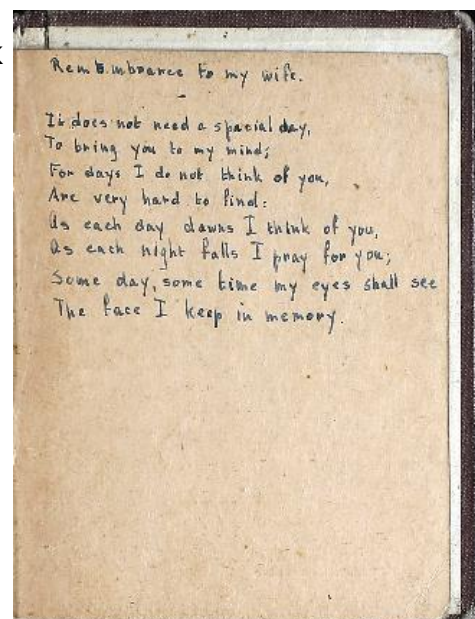 Remembrance to my wife.
It does not need a spacial day,
To bring you to my mind;
For days I do not think of you,
Are very hard to find:
As each day dawns I think of you,
As each night falls I pray for you;
Some day, some time my eyes shall see
The face I keep in memory.